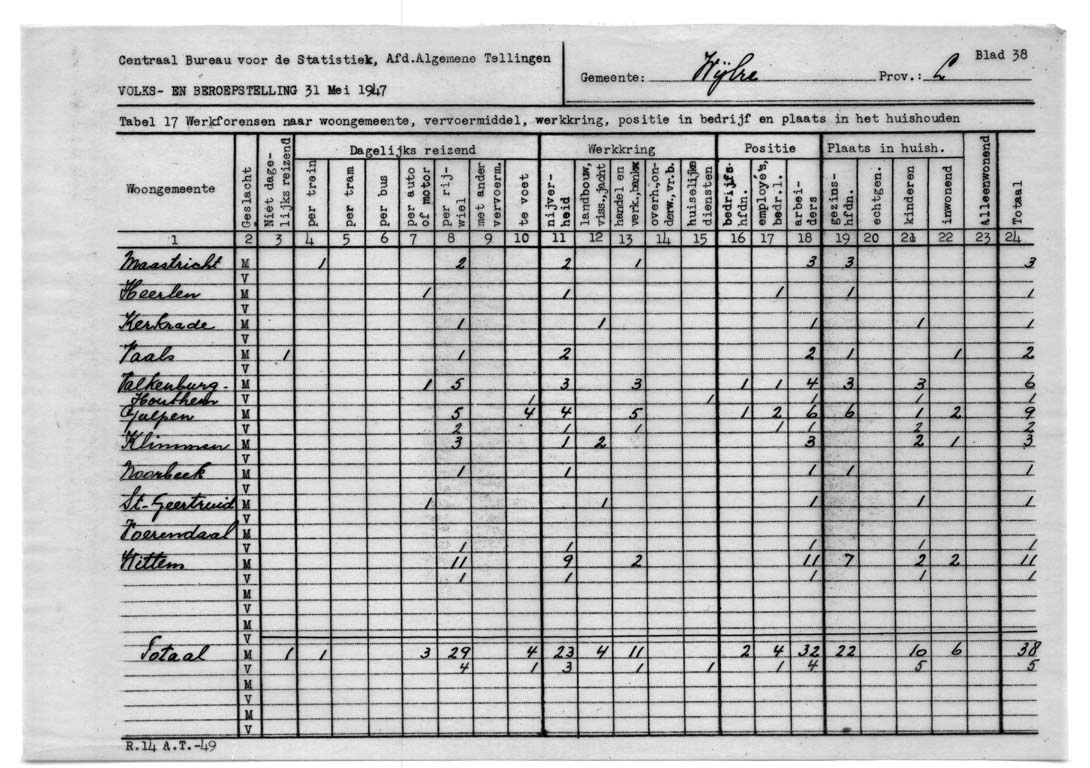 Centraal Bureau voor de Statistiek, Afd.Algemene Tellingen
VOLKS- EN BEROEPSTELLING 31 Mei 1947
Gemeente: Wijlre Prov.: L Blad 38
Tabel 17 Werkforensen naar woongemeente, vervoermiddel, werkkring, positie in bedrijf en plaats in het huishouden
Woongemeente Geslacht Niet dage-lijks reizend Dagelijks reizend Werkkring Positie Plaats in huish. Alleenwonend Totaal
per trein per tram per bus per auto of motor per rij-wiel met ander vervoerm. te voet nijver-heid landbouw, viss.,jacht handel en verk.,banken overh.,on-derw.,vr.b. huiselijke diensten bedrijfs-hfdn. employé's, bedr.l. arbei-ders gezins-hfdn. echtgen. kinderen inwonend
1 2 3 4 5 6 7 8 9 10 11 12 13 14 15 16 17 18 19 20 21 22 23 24
Maastricht M 1 2 2 1 3 3 3
V
Heerlen M 1 1 1 1 1
V
Kerkrade M 1 1 1 1 1
V
Vaals M 1 1 2 2 1 1 2
V
Valkenburg- M 1 5 3 3 1 1 4 3 3 6
Houthem V 1 1 1 1 1
Gulpen M 5 4 4 5 1 2 6 6 1 2 9
V 2 1 1 1 1 2 2
Klimmen M 3 1 2 3 2 1 3
V
Noorbeek M 1 1 1 1 1
V
St-Geertruid M 1 1 1 1 1
V
Voerendaal M
V 1 1 1 1 1
Wittem M 11 9 2 11 7 2 2 11
V 1 1 1 1 1
M
V
M
V
Totaal M 1 1 3 29 4 23 4 11 2 4 32 22 10 6 38
V 4 1 3 1 1 1 4 5 5
M
V
M
V
R.14 A.T.-49